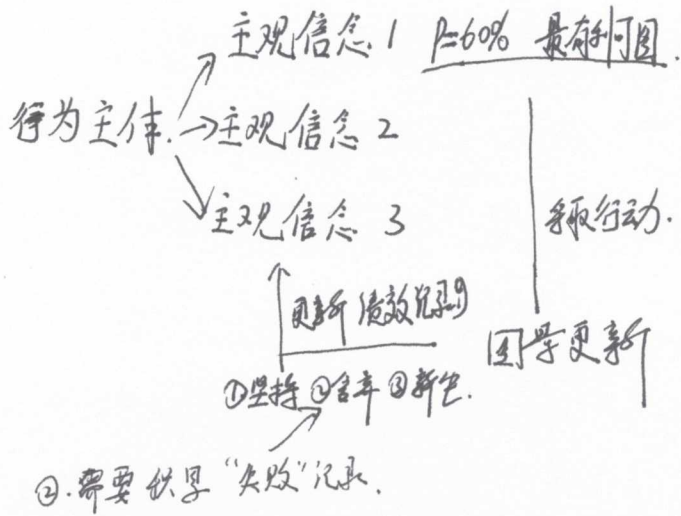 主观信念 1 P=60% 最有利可图.
行为主体. →主观信念 2
主观信念 3
采取行动.
更新 绩效记录
结果更新
①坚持 ②舍弃 ③新生.
②.需要积累“失败”记录.